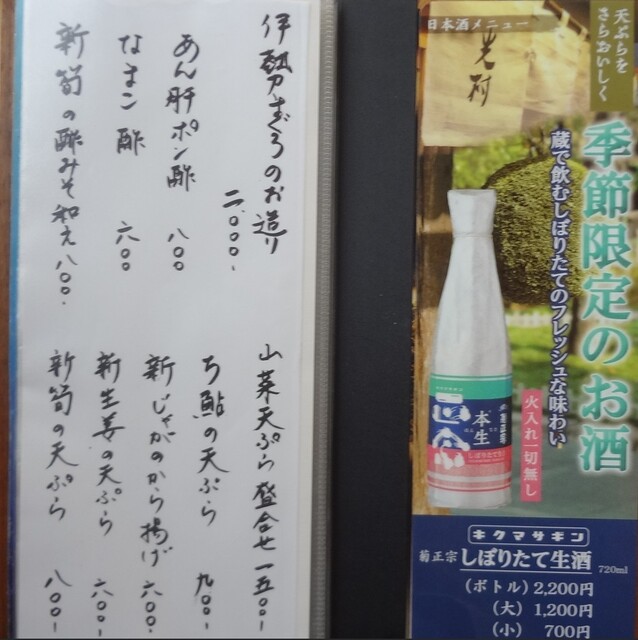 伊勢まぐろのお造り 二、〇〇〇-
あん肝ポン酢 八〇〇
なまこ酢 六〇〇
新筍の酢みそ和え 八〇〇.
山菜天ぷら盛合せ 一五〇〇-
ち鮎の天ぷら 九〇〇-
新じゃがのから揚げ 六〇〇.
新生姜の天ぷら 六〇〇-
新筍の天ぷら 八〇〇-
天ぷらを
さらおいしく
日本酒メニュー
季節限定のお酒
蔵で飲むしぼりたてのフレッシュな味わい
火入れ一切無し
菊正宗
本生
しぼりたて
キクマサギン
菊正宗 しぼりたて生酒 720ml
(ボトル) 2,200円
(大) 1,200円
(小) 700円